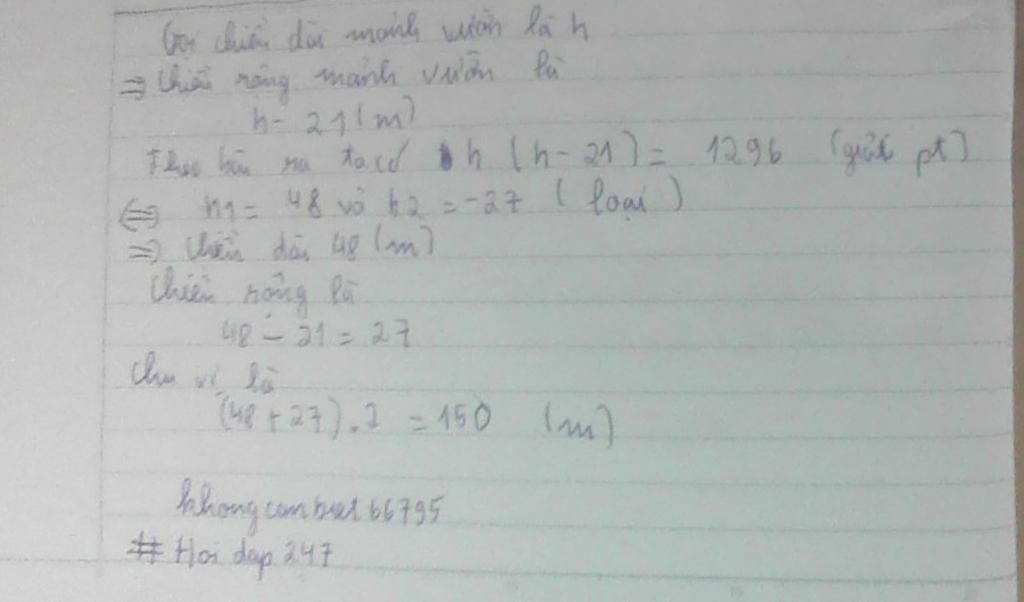 Gọi chiều dài mảnh vườn là h
=> Chiều rộng mảnh vườn là
h - 21 (m)
Theo bài ra ta có h (h - 21) = 1296 (giải pt)
<=> h1 = 48 và h2 = -27 (loại)
=> Chiều dài 48 (m)
Chiều rộng là
48 - 21 = 27
Chu vi là
(48 + 27) . 2 = 150 (m)
khongcanbiet66795
# Hoi dap 247